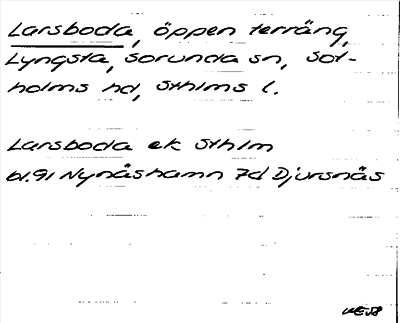 Larsboda, öppen terräng,
Lyngsta, Sorunda sn, Sot-
holms hd, Sthlms l.
Larsboda ek Sthlm
bl.91 Nynäshamn 7d Djursnäs